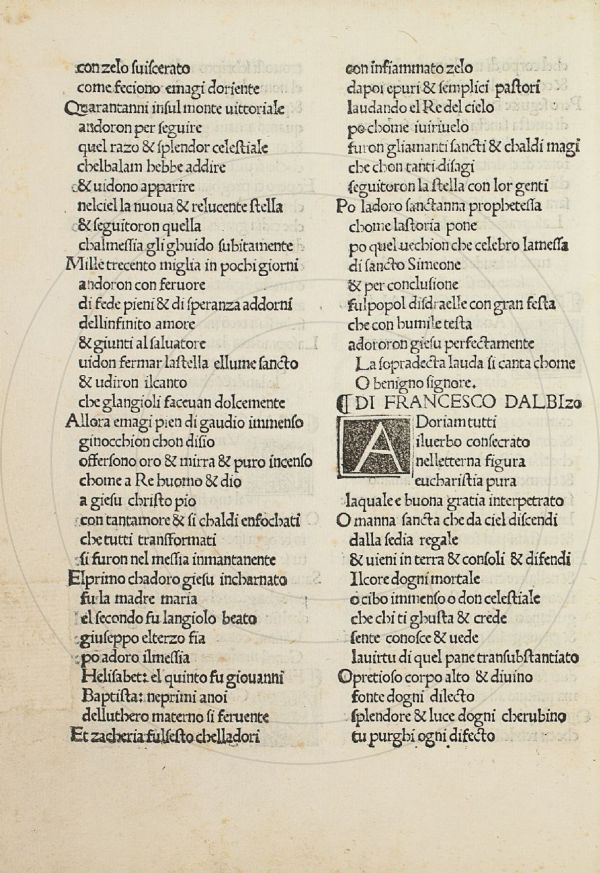 con zelo suiscerato
come feciono emagi doriente
Quarantanni insul monte uittoriale
andoron per seguire
quel razo & splendor celestiale
chelbalam hebbe addire
& uidono apparire
nelciel la nuoua & relucente stella
& seguitoron quella
chalmessia gli ghuido subitamente
Mille trecento miglia in pochi giorni
andoron con feruore
di fede pieni & di speranza addorni
dellinfinito amore
& giunti al saluatore
uidon fermar lastella ellume sancto
& udiron ilcanto
che glangioli faceuan dolcemente
Allora emagi pien di gaudio immenso
ginocchion chon disio
offersono oro & mirra & puro incenso
chome a Re huomo & dio
a giesu christo pio
con tantamore & si chaldi enfochati
che tutti transformati
si furon nel messia inmantanente
Elprimo chadoro giesu incharnato
fu la madre maria
el secondo fu langiolo beato
giuseppo elterzo fia
po adoro ilmessia
Helisabet: el quinto fu giouanni
Baptista: neprimi anoi
delluthero materno si feruente
Et zacheria fulsesto chelladori
con infiammato zelo
dapoi epuri & semplici pastori
laudando el Re del cielo
po chome iuiriuelo
furon gliamanti sancti & chaldi magi
che chon tanti disagi
seguitoron la stella con lor genti
Po ladoro sanctanna prophetessa
chome lastoria pone
po quel uecchion che celebro lamessa
di sancto Simeone
& per conclusione
ful popol disdraelle con gran festa
che con humile testa
adororon giesu perfectamente
La sopradecta lauda si canta chome
O benigno signore.
¶ DI FRANCESCO DALBIzo
ADoriam tutti
iluerbo consecrato
nelletterna figura
eucharistia pura
laquale e buona gratia interpetrato
O manna sancta che da ciel discendi
dalla sedia regale
& uieni in terra & consoli & difendi
Ilcore dogni mortale
o cibo immenso o don celestiale
che chi ti ghusta & crede
sente conosce & uede
lauirtu di quel pane transubstantiato
Opretioso corpo alto & diuino
fonte dogni dilecto
splendore & luce dogni cherubino
tu purghi ogni difecto